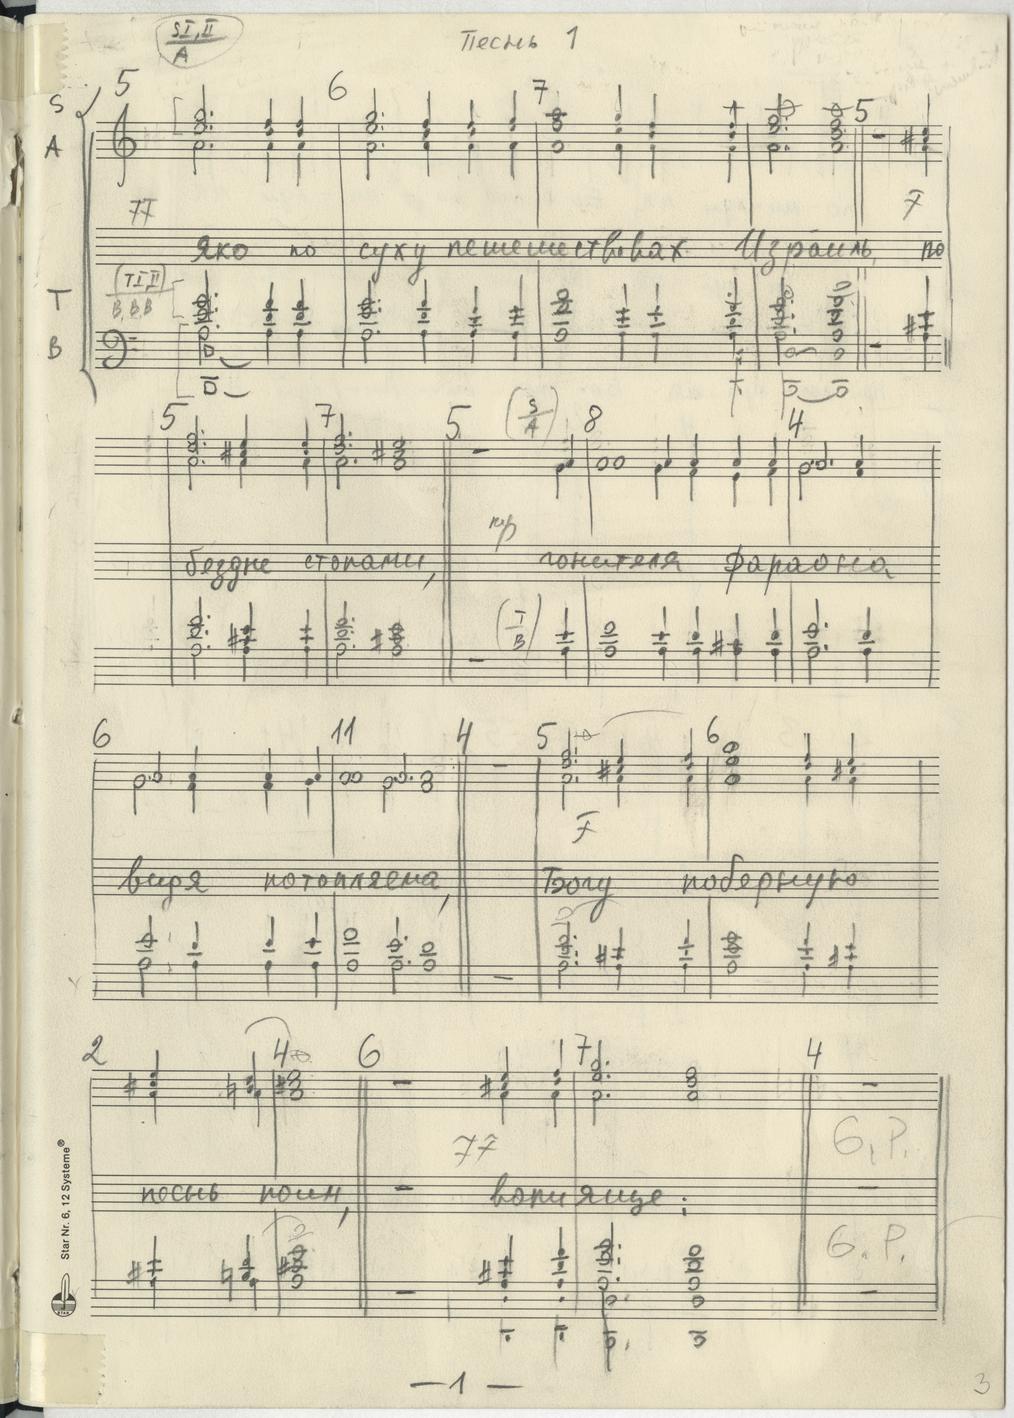 SI, II
A
Песнь 1
5 6 7 5
S
A
ff f
Яко по суху пешешествовах Израиль, по
(TI, II)
B, B, B
T
B
5 7 5 (S/A) 8 4
mp
бездне стопами, гонителя фараона
(T/B)
6 11 4 5 6
f
видя потопляема, Богу победную
2 4 6 7 4
ff G.P.
песнь поим, вопияще:
G.P.
Star Nr. 6, 12 Systeme®
STAR
— 1 —
3